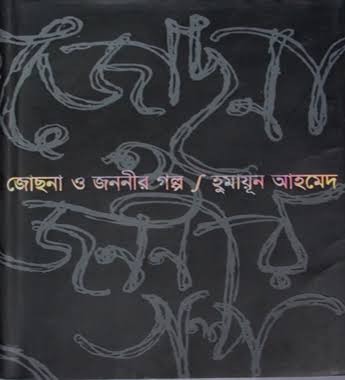 জোছনা
ও
জোছনা ও জননীর গল্প / হুমায়ূন আহমেদ
জননীর
গল্প